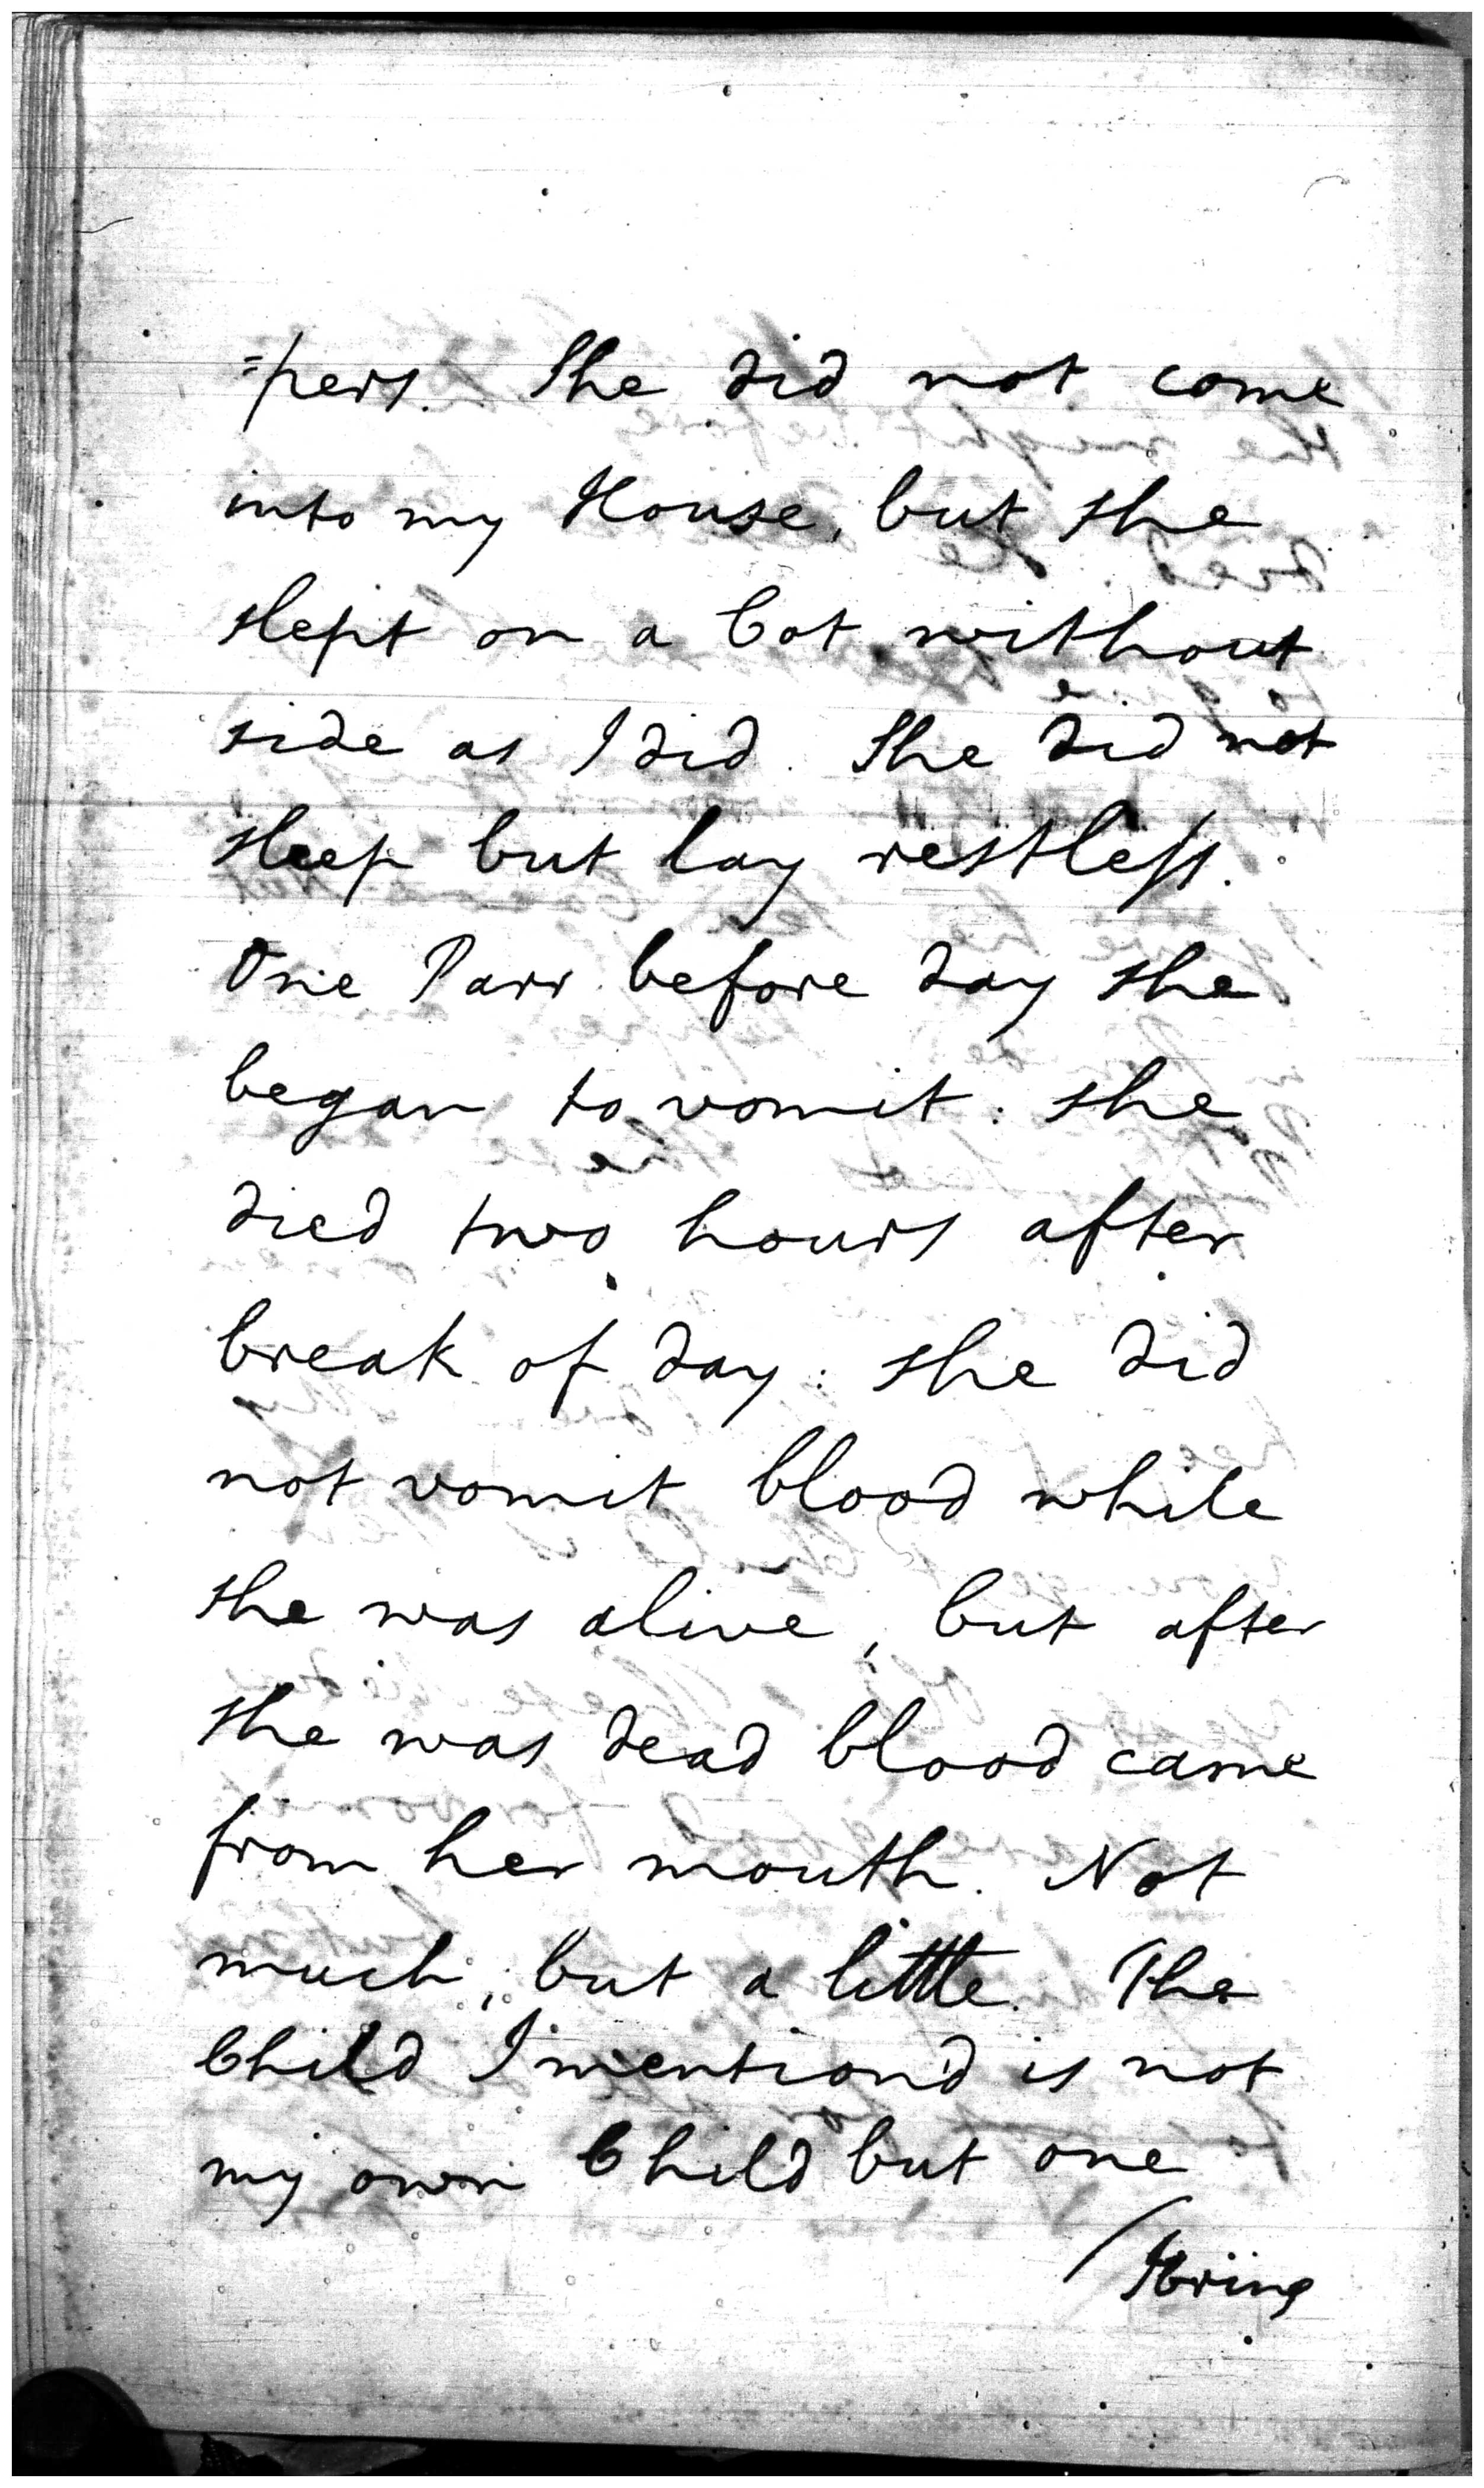 =pers. She did not come
into my House, but she
slept on a Cot without
side as I did. She did not
sleep but lay restless.
One Parr before day she
began to vomit: she
died two hours after
break of day: she did
not vomit blood while
she was alive, but after
she was dead blood came
from her mouth. Not
much, but a little. The
Child I mention'd is not
my own Child but one